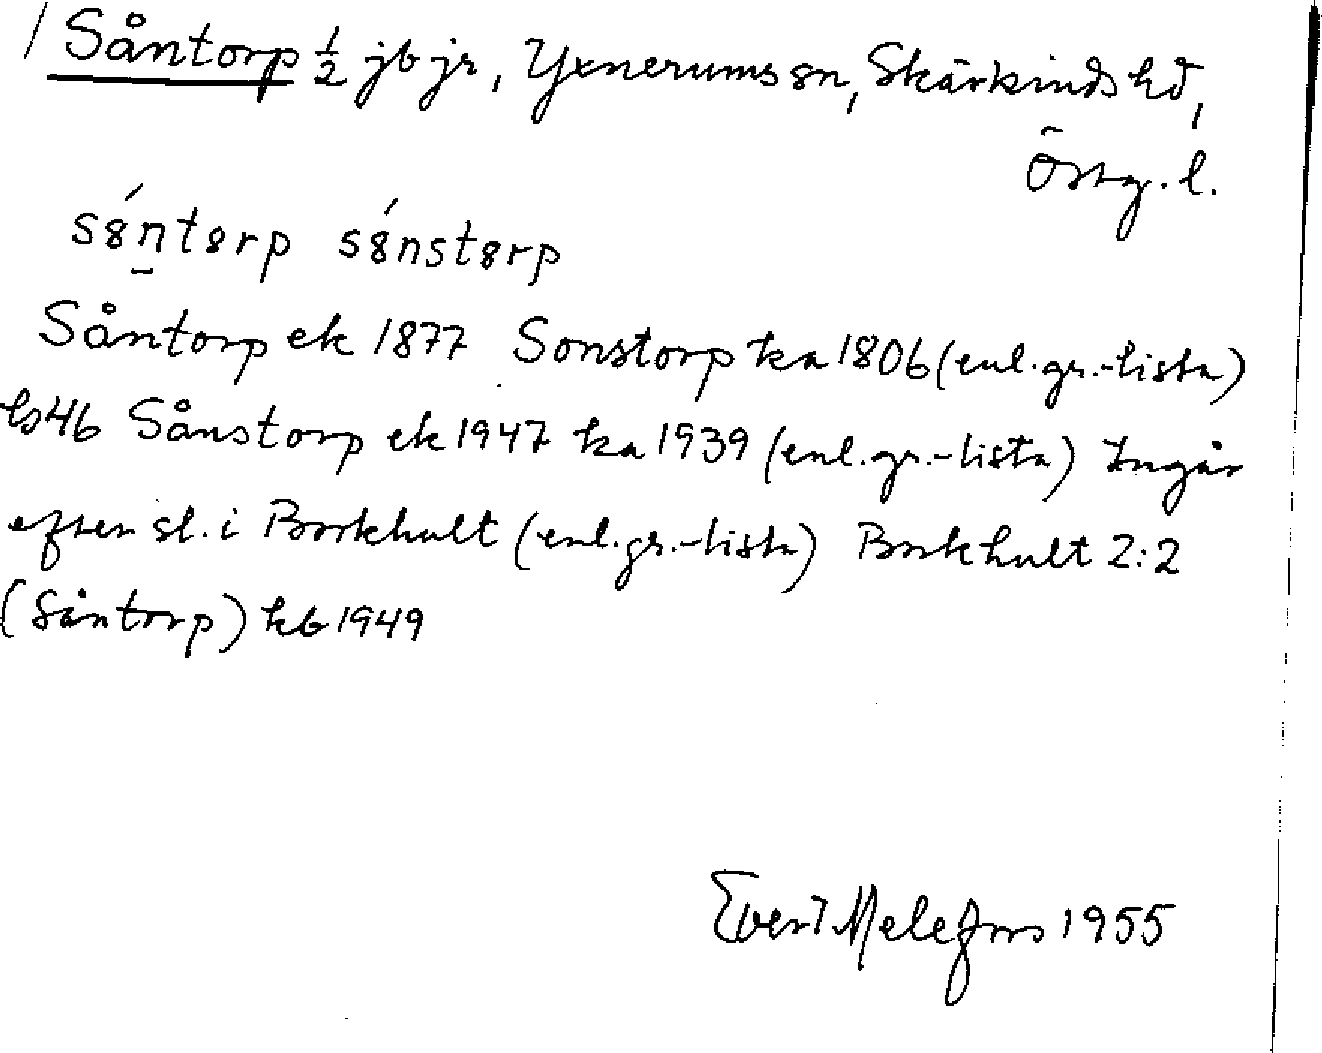 / Såntorp ½ jb jr, Yxnerums sn, Skärkinds hd,
Östg. l.
sȣ́ntȣrp sȣ́nstȣrp
Såntorp ek 1877 Sonstorp ka 1806 (enl. gr.-lista)
ls 46 Sånstorp ek 1947 ka 1939 (enl. gr.-lista) Ingår
efter sl. i Borkhult (enl. gr.-lista) Borkhult 2:2
(Såntorp) kb 1949
Evert Melefors 1955